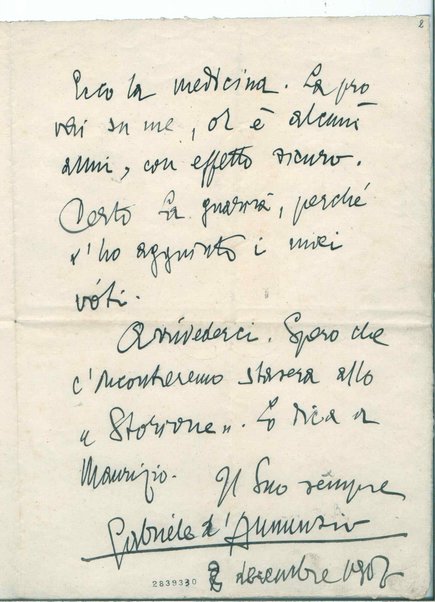 2
Ecco la medicina. La pro
vai su me, or è alcuni
anni, con effetto sicuro.
Certo La guarirà, perché
v'ho aggiunto i miei
vóti.
Arrivederci. Spero che
c'incontreremo stasera allo
"Storione". Lo dica a
Maurizio.
Il Suo sempre
Gabriele d'Annunzio
2839330
2 decembre 1907